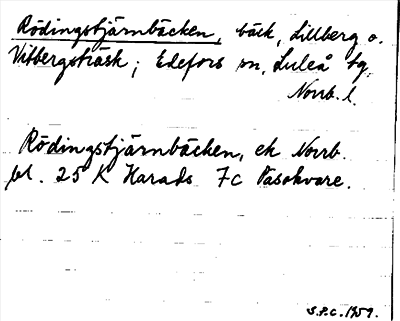 Rödingstjärnbäcken, bäck, Lillberg o.
Vitbergsträsk; Edefors sn, Luleå tg.
Norrb. l.
Rödingstjärnbäcken, ek Norrb.
bl. 25 K Harads 7c Vasokvare.
S.P.C. 1959.